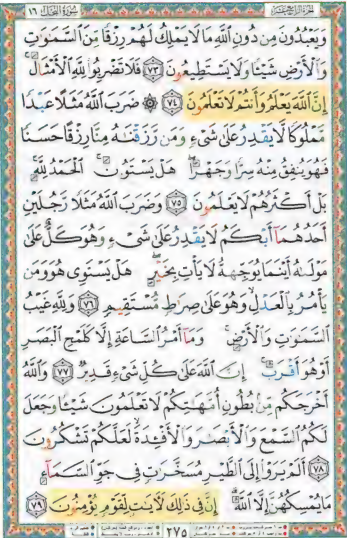 الجزء الرابع عشر سورة النحل ١٦
وَيَعْبُدُونَ مِن دُونِ ٱللَّهِ مَا لَا يَمْلِكُ لَهُمْ رِزْقًا مِّنَ ٱلسَّمَٰوَٰتِ
وَٱلْأَرْضِ شَيْـًٔا وَلَا يَسْتَطِيعُونَ ٧٣ فَلَا تَضْرِبُوا۟ لِلَّهِ ٱلْأَمْثَالَ ۚ
إِنَّ ٱللَّهَ يَعْلَمُ وَأَنتُمْ لَا تَعْلَمُونَ ٧٤ ۞ ضَرَبَ ٱللَّهُ مَثَلًا عَبْدًا
مَّمْلُوكًا لَّا يَقْدِرُ عَلَىٰ شَىْءٍ وَمَن رَّزَقْنَٰهُ مِنَّا رِزْقًا حَسَنًا
فَهُوَ يُنفِقُ مِنْهُ سِرًّا وَجَهْرًا ۖ هَلْ يَسْتَوُۥنَ ۚ ٱلْحَمْدُ لِلَّهِ ۚ
بَلْ أَكْثَرُهُمْ لَا يَعْلَمُونَ ٧٥ وَضَرَبَ ٱللَّهُ مَثَلًا رَّجُلَيْنِ
أَحَدُهُمَآ أَبْكَمُ لَا يَقْدِرُ عَلَىٰ شَىْءٍ وَهُوَ كَلٌّ عَلَىٰ
مَوْلَىٰهُ أَيْنَمَا يُوَجِّههُّ لَا يَأْتِ بِخَيْرٍ ۖ هَلْ يَسْتَوِى هُوَ وَمَن
يَأْمُرُ بِٱلْعَدْلِ ۙ وَهُوَ عَلَىٰ صِرَٰطٍ مُّسْتَقِيمٍ ٧٦ وَلِلَّهِ غَيْبُ
ٱلسَّمَٰوَٰتِ وَٱلْأَرْضِ ۚ وَمَآ أَمْرُ ٱلسَّاعَةِ إِلَّا كَلَمْحِ ٱلْبَصَرِ
أَوْ هُوَ أَقْرَبُ ۚ إِنَّ ٱللَّهَ عَلَىٰ كُلِّ شَىْءٍ قَدِيرٌ ٧٧ وَٱللَّهُ
أَخْرَجَكُم مِّنۢ بُطُونِ أُمَّهَٰتِكُمْ لَا تَعْلَمُونَ شَيْـًٔا وَجَعَلَ
لَكُمُ ٱلسَّمْعَ وَٱلْأَبْصَٰرَ وَٱلْأَفْـِٔدَةَ ۙ لَعَلَّكُمْ تَشْكُرُونَ
٧٨ أَلَمْ يَرَوْا۟ إِلَى ٱلطَّيْرِ مُسَخَّرَٰتٍ فِى جَوِّ ٱلسَّمَآءِ
مَا يُمْسِكُهُنَّ إِلَّا ٱللَّهُ ۗ إِنَّ فِى ذَٰلِكَ لَءَايَٰتٍ لِّقَوْمٍ يُؤْمِنُونَ ٧٩
٢٧٥